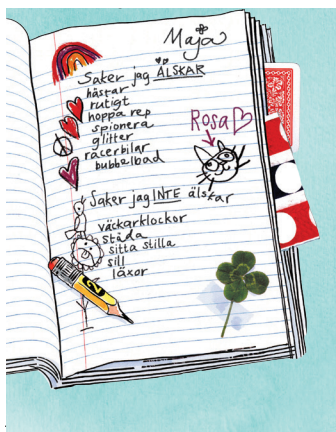 Maja
Saker jag ÄLSKAR
hästar
rutigt
hoppa rep
spionera
glitter
racerbilar
bubbelbad
Rosa
Saker jag INTE älskar
väckarklockor
städa
sitta stilla
sill
läxor
2